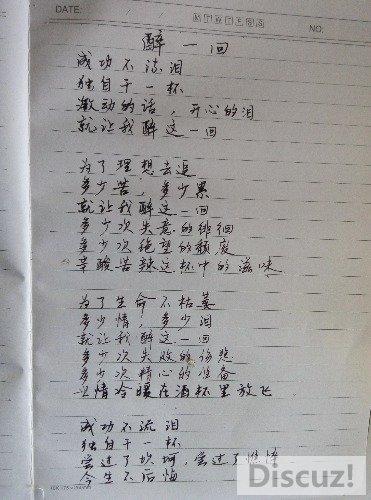 DATE:
NO:
醉一回
成功不流泪
独自干一杯
激动的话，开心的泪
就让我醉这一回
为了理想去追
多少苦，多少累
就让我醉这一回
多少次失意的徘徊
多少次绝望的颓废
辛酸苦辣这杯中的滋味
为了生命不枯萎
多少情，多少泪
就让我醉这一回
多少次失败的伤悲
多少次精心的准备
情冷暖在酒杯里放飞
成功不流泪
独自干一杯
尝过了坎坷，尝过了憔悴
今生不后悔
Discuz!